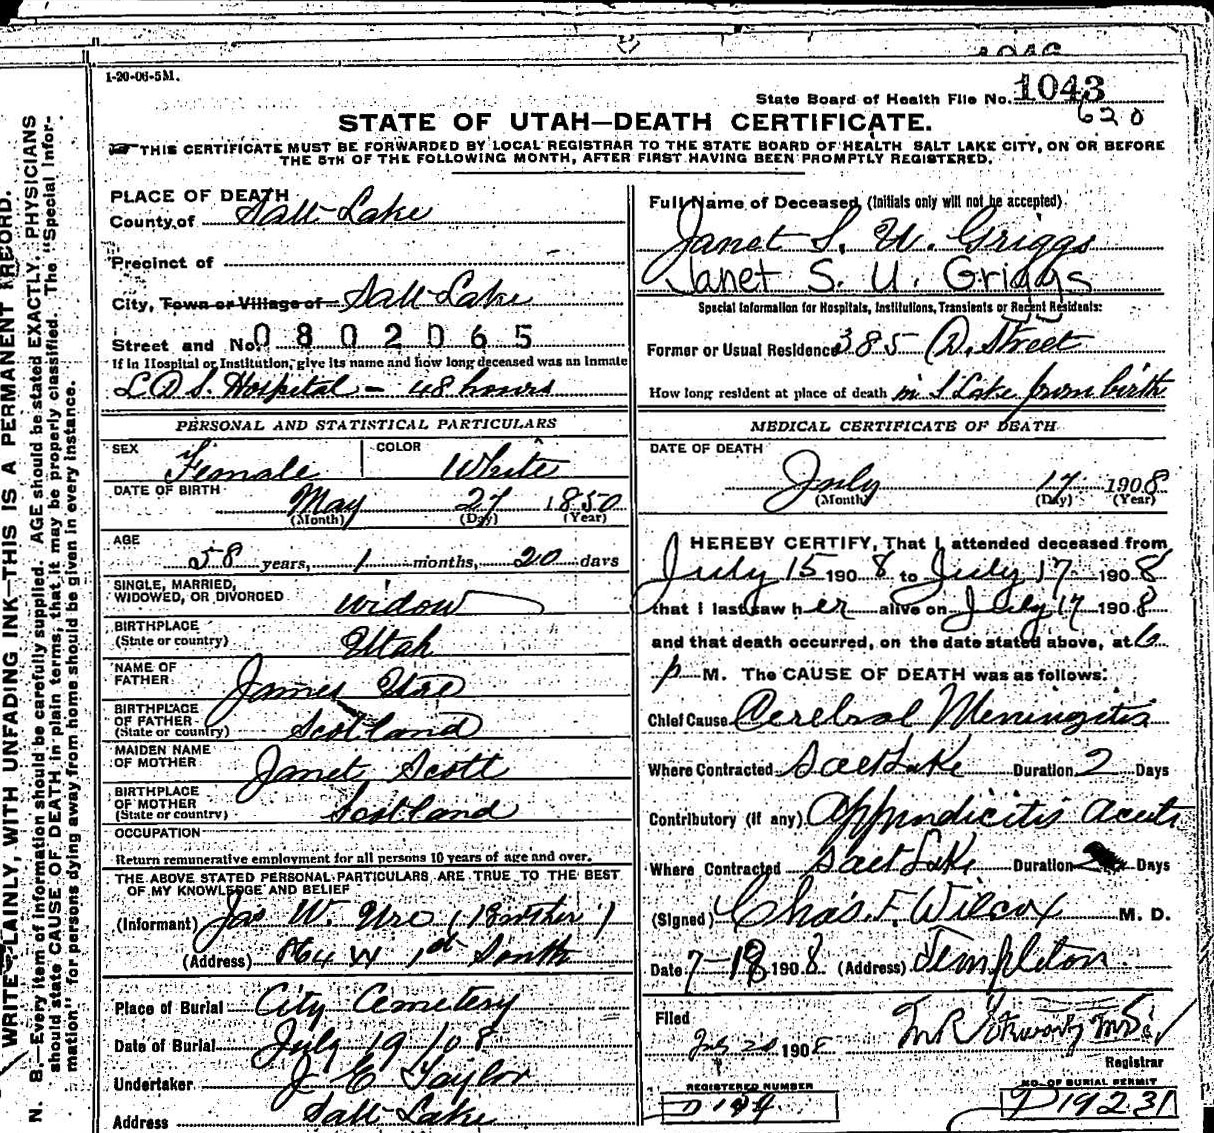 1046
1-20-06-5M.
State Board of Health File No. 1043
620
STATE OF UTAH—DEATH CERTIFICATE.
THIS CERTIFICATE MUST BE FORWARDED BY LOCAL REGISTRAR TO THE STATE BOARD OF HEALTH SALT LAKE CITY, ON OR BEFORE
THE 5TH OF THE FOLLOWING MONTH, AFTER FIRST HAVING BEEN PROMPTLY REGISTERED.
WRITE PLAINLY, WITH UNFADING INK—THIS IS A PERMANENT RECORD.
N. B.—Every item of information should be carefully supplied. AGE should be stated EXACTLY. PHYSICIANS
should state CAUSE OF DEATH in plain terms, that it may be properly classified. The "Special Infor-
mation" for persons dying away from home should be given in every instance.
PLACE OF DEATH
County of Salt Lake
Precinct of
City, Town or Village of Salt Lake
Street and No. 0802065
If in Hospital or Institution, give its name and how long deceased was an Inmate
L.D.S. Hospital - 48 hours
PERSONAL AND STATISTICAL PARTICULARS
SEX Female COLOR White
DATE OF BIRTH May 27 1850
(Month) (Day) (Year)
AGE
58 years, 1 months, 20 days
SINGLE, MARRIED,
WIDOWED, OR DIVORCED widow
BIRTHPLACE
(State or country) Utah
NAME OF
FATHER James Ure
BIRTHPLACE
OF FATHER
(State or country) Scotland
MAIDEN NAME
OF MOTHER Janet Scott
BIRTHPLACE
OF MOTHER
(State or country) Scotland
OCCUPATION
Return remunerative employment for all persons 10 years of age and over.
THE ABOVE STATED PERSONAL PARTICULARS ARE TRUE TO THE BEST
OF MY KNOWLEDGE AND BELIEF
(Informant) Jas W. Ure (Brother)
(Address) W 1st South
Place of Burial City Cemetery
Date of Burial July 19 1908
Undertaker J E Taylor
Address Salt Lake
Full Name of Deceased (Initials only will not be accepted)
Janet S. U. Griggs
Janet S. U. Griggs
Special Information for Hospitals, Institutions, Transients or Recent Residents:
Former or Usual Residence 385 D. Street
How long resident at place of death in S Lake from birth
MEDICAL CERTIFICATE OF DEATH
DATE OF DEATH
July 17 1908
(Month) (Day) (Year)
I HEREBY CERTIFY, That I attended deceased from
July 15 1908 to July 17 1908
that I last saw her alive on July 17 1908
and that death occurred, on the date stated above, at 6
p M. The CAUSE OF DEATH was as follows:
Chief Cause Cerebral Meningitis
Where Contracted Salt Lake Duration 2 Days
Contributory (if any) Appendicitis Acute
Where Contracted Salt Lake Duration Days
(Signed) Chas. F. Wilcox M. D.
Date 7-18 1908 (Address) Templeton
Filed
July 20 1908
Registrar
REGISTERED NUMBER
NO. OF BURIAL PERMIT
D 19231